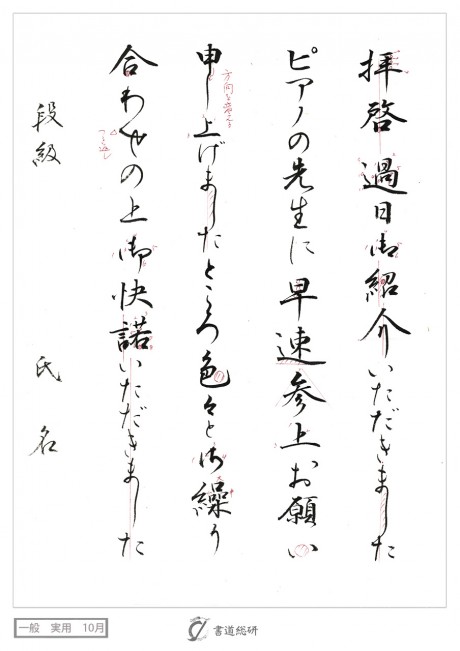 拝啓過日御紹介いただきました
ピアノの先生に早速参上お願い
申し上げましたところ色々と御繰り
合わせの上御快諾いただきました
段級 氏名
方向を変える
一般 実用 10月
書道総研